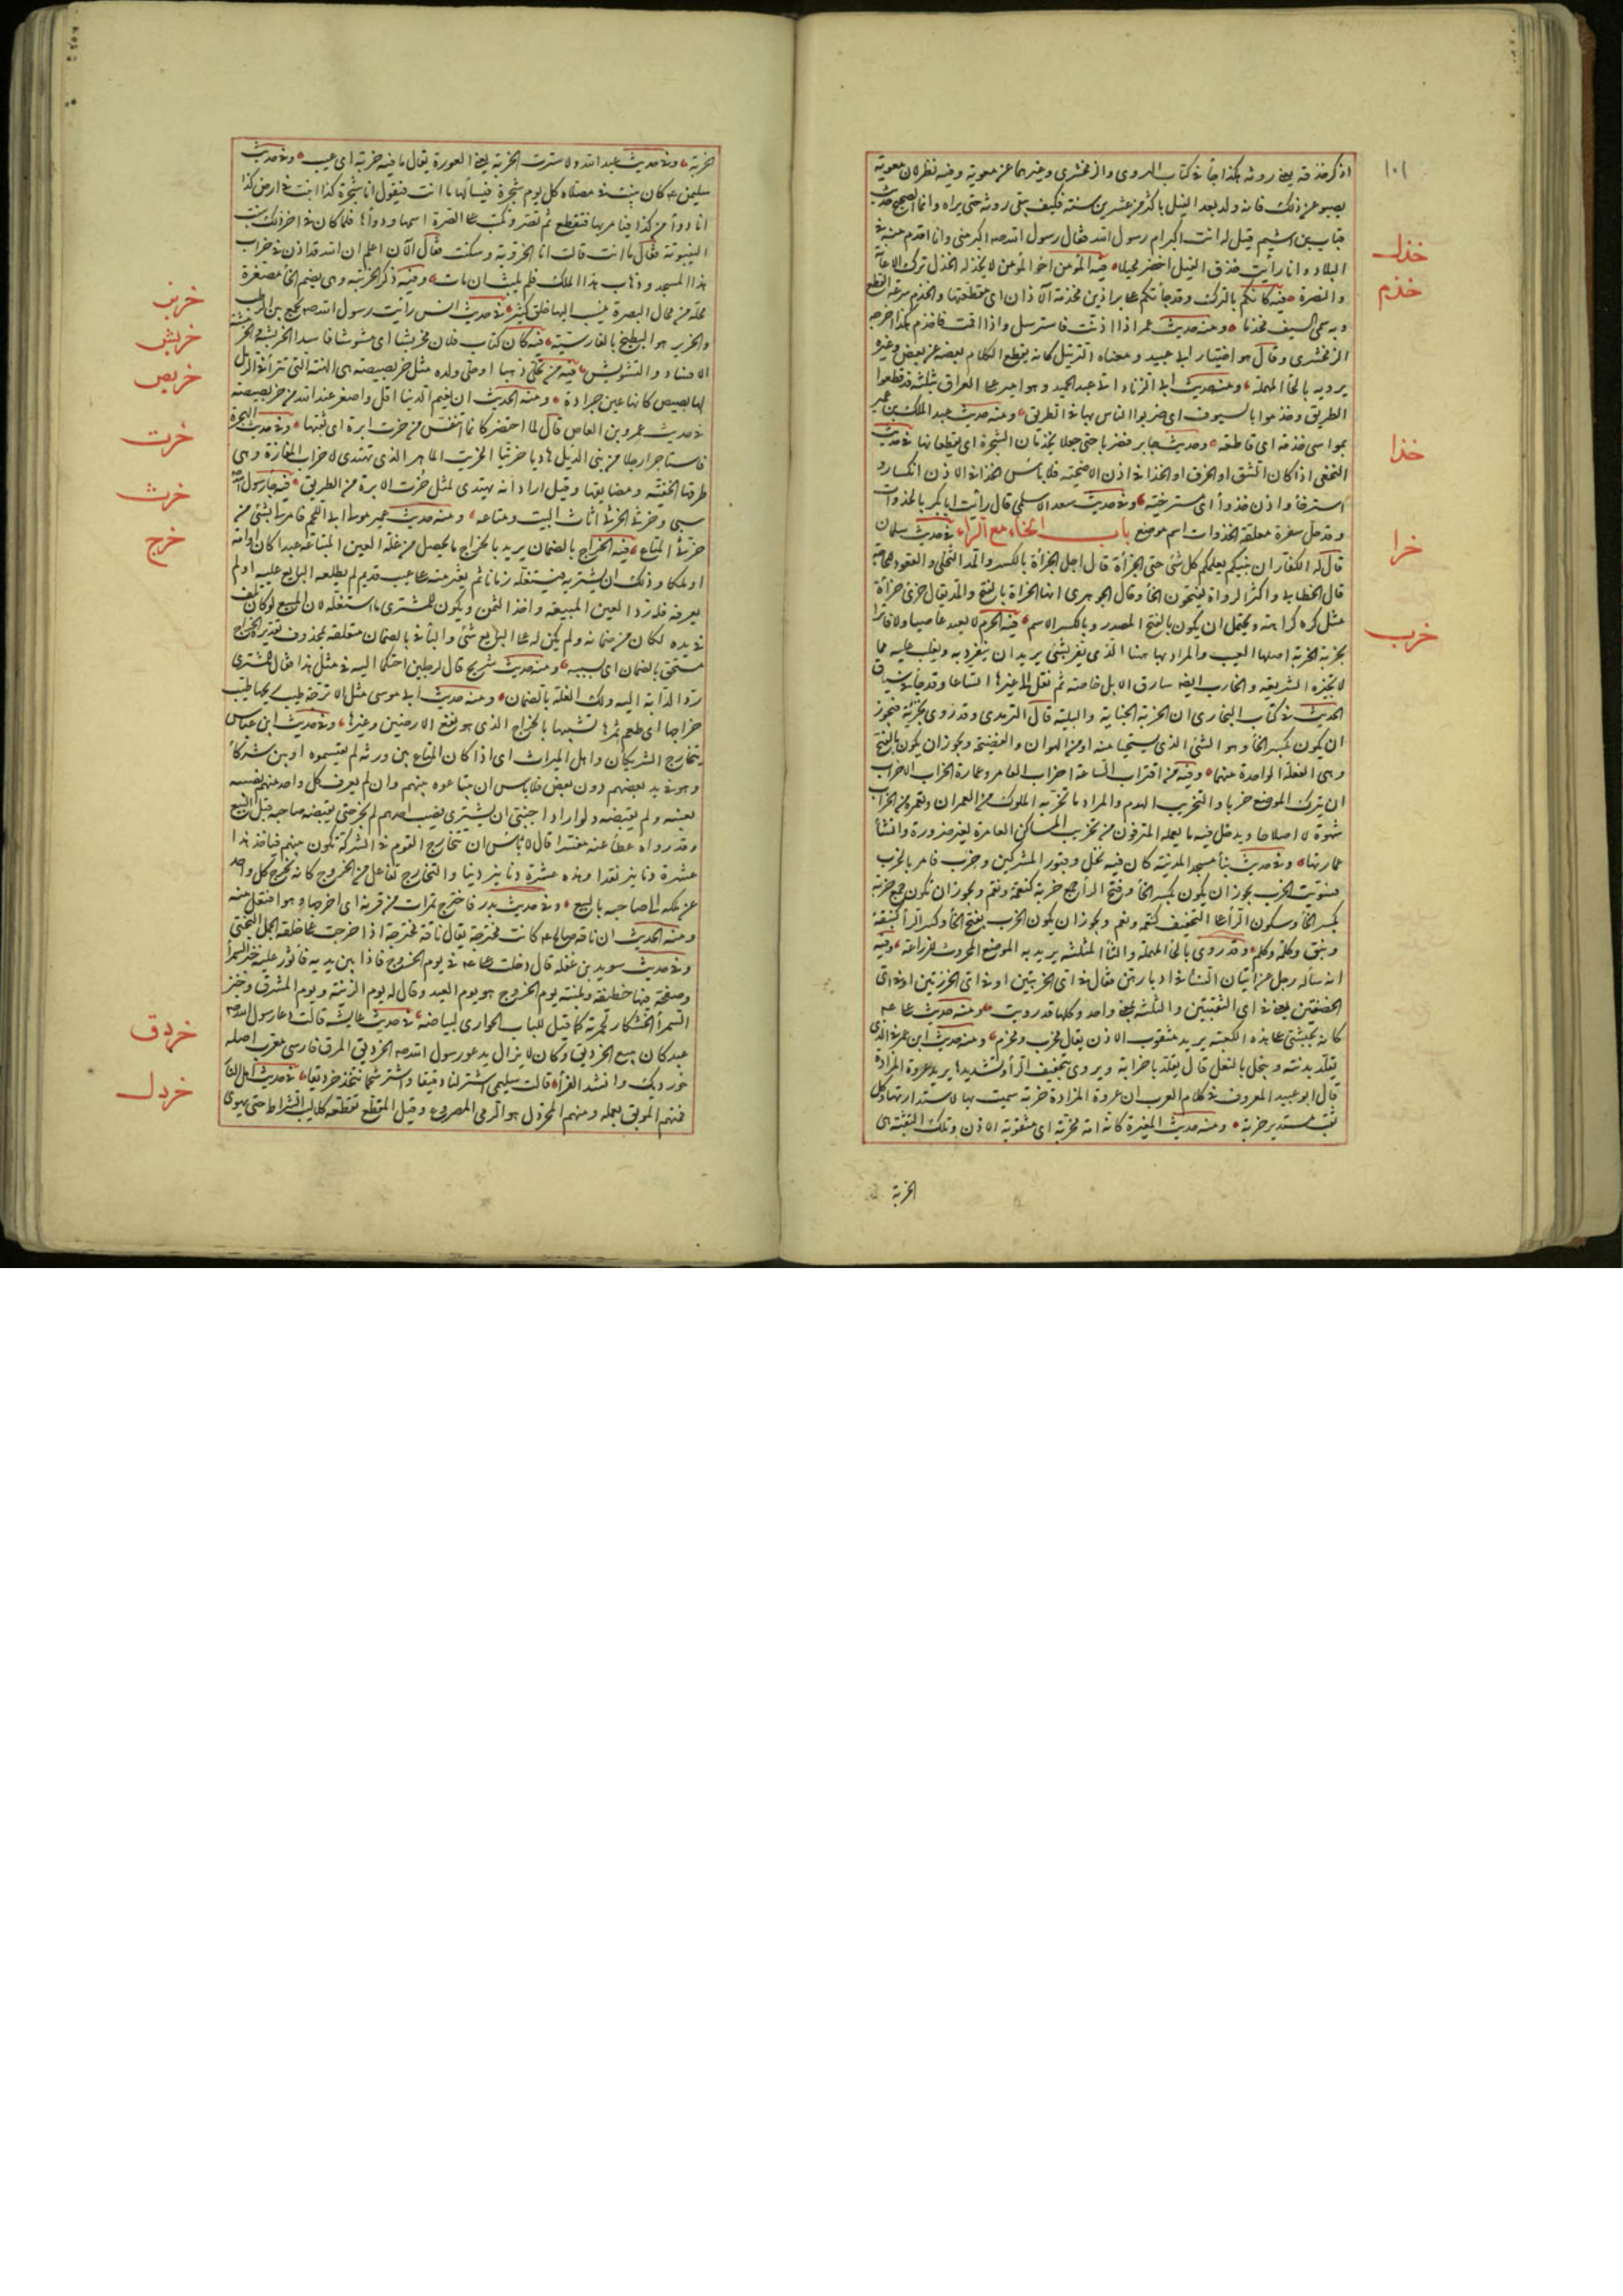 ١٠١
اذكر خذقه يعني روثه هكذا جاء في كتاب الهروي والزمخشري وغيرهما عن معوية وفيه نظر لان معوية
يصبو عن ذلك فانه ولد بعد الفيل باكثر من عشرين سنة فكيف يبقى روثه حتى يراه وانما الصحيح حديث
قباث بن اشيم قيل له انت اكبر ام رسول الله فقال رسول الله صه اكبر مني وانا اقدم منه في
البلاد وانا رأيت خذق الفيل اخضر محيلا فيه المؤمن اخو المؤمن لا يخذله الخذل ترك الاعانة
والنصرة فيه كانكم بالترك وقد جاءتكم على براذين مخذمة الآذان اى مقطعتها والخذم سرعة القطع
وبه سمى السيف مخذما ومنه حديث عمر اذا اذنت فاسترسل واذا اقمت فاخذم هكذا اخرجه
الزمخشرى وقال هو اختيار ابى عبيد ومعناه الترتيل كانه يقطع الكلام بعضه عن بعض وغيره
يرويه بالحاء المهملة ومنه حديث ابى الزناد اتى عبد الحميد وهو امير على العراق بثلثة قد قطعوا
الطريق وخذموا بالسيوف اى ضربوا الناس بها في الطريق ومنه حديث عبد الملك بن عمير
بمواسى خذمة اى قاطعة وحديث جابر فضربا حتى جعلا يخذمان الشجرة اى يقطعانها في حديث
النخعى اذا كان الشق او الخرق او الخذا في اذن الاضحية فلا بأس الخذا في الاذن انكسار و
استرخاء واذن خذواء اى مسترخية وفي حديث سعد الاسلمى قال رأيت ابا بكر بالخذوات
وقد حل سفرة معلقة الخذوات اسم موضع باب الخاء مع الراء في حديث سلمان
قال له الكفار ان نبيكم يعلمكم كل شئ حتى الخراءة قال اجل الخراءة بالكسر والمد التخلى والقعود للحاجة
قال الخطابى واكثر الرواة يفتحون الخاء وقال الجوهرى انها الخراءة بالفتح والمد يقال خرئ خراءة
مثل كره كراهة ويحتمل ان يكون بالفتح المصدر وبالكسر الاسم فيه الحرم لا يعيذ عاصيا ولا فارا
بخربة الخربة اصلها العيب والمراد بها ههنا الذى يفر بشئ يريد ان ينفرد به ويغلب عليه مما
لا تجيزه الشريعة والخارب ايضا سارق الابل خاصة ثم نقل الى غيرها اتساعا وقد جاء في سياق
الحديث في كتاب البخارى ان الخربة الجناية والبلية قال الترمذى وقد روى بخزية فيجوز
ان يكون بكسر الخاء وهو الشئ الذى يستحيا منه او من الهوان والفضيحة ويجوز ان يكون بالفتح
وهى الفعلة الواحدة منهما وفيه من اقتراب الساعة اخراب العامر وعمارة الخراب الاخراب
ان يترك الموضع خربا والتخريب الهدم والمراد ما تخربه الملوك من العمران وتعمره من الخراب
شهوة لا اصلاحا ويدخل فيه ما يعمله المترفون من تخريب المساكن العامرة لغير ضرورة وانشاء
عمارتها وفي حديث بناء مسجد المدينة كان فيه نخل وقبور المشركين وخرب فامر بالخرب
فسويت الخرب يجوز ان يكون بكسر الخاء وفتح الراء جمع خربة كنقمة ونقم ويجوز ان تكون جمع خربة
بكسر الخاء وسكون الراء على التخفيف كنعمة ونعم ويجوز ان يكون الخرب بفتح الخاء وكسر الراء كنبقة
ونبق وكلمة وكلم وقد روى بالحاء المهملة والثاء المثلثة يريد به الموضع المحروث للزراعة وفيه
انه سأله رجل عن اتيان النساء في ادبارهن فقال في اى الخربتين او في اى الخرزتين او في اى
الخصفتين يعنى في اى الثقبتين والثلثة بمعنى واحد وكلها قد رويت ومنه حديث على عه
كانه بحبشى على هذه الكعبة يريد مثقوب الاذن يقال مخرب ومخرم ومنه حديث ابن عمر في الذى
يقلد بدنته ويبخل بالنعل قال يقلدها خرابة ويروى بتخفيف الراء وتشديدها يريد عروة المزادة
قال ابو عبيد المعروف في كلام العرب ان عروة المزادة خربة سميت بها لاستدارتها وكل
ثقب مستدير خربة ومنه حديث المغيرة كانه امة مخربة اى مثقوبة الاذن وتلك الثقبة هى
الخربة
خذل
خذم
خذا
خرا
خرب
الخربة وفي حديث عبد الله ولا سترت الخربة يعنى العورة يقال ما فيه خربة اى عيب وفي حديث
سليمن عه كان ينبت في مصلاه كل يوم شجرة فيسألها ما انت فيقول انا شجرة كذا انبت في ارض كذا
انا دواء من كذا فيأمر بها فتقطع ثم تصر ونكتب على الصرة اسمها ودواءها فلما كان في اخر ذلك نبتت
الينبوتة فقال ما انت قالت انا الخروبة وسكتت فقال الآن اعلم ان الله قد اذن في خراب
هذا المسجد وذهاب هذا الملك فلم يلبث ان مات وفيه ذكر الخريبة وهى بضم الخاء مصغرة
محلة من محال البصرة ينسب اليها خلق كثير في حديث انس رأيت رسول الله صه يجمع بين الرطب
والخربز هو البطيخ بالفارسية فيه كان كتاب فلان مخربشا اى مشوشا فاسدا الخربشة والخرمشة
الافساد والتشويش فيه من تحلى ذهبا او حلى ولده مثل خربصيصة هى الهنة التى تتراءى في الرمل
لها بصيص كانها عين جرادة ومنه الحديث ان نعيم الدنيا اقل واصغر عند الله من خربصيصة
في حديث عمرو بن العاص قال لما احتضر كانما اتنفس من خرت ابرة اى ثقبها وفي حديث الهجرة
فاستاجر رجلا من بنى الديل هاديا خريتا الخريت الماهر الذى يهتدى لاخرات المفازة وهى
طرقها الخفية ومضايقها وقيل اراد انه يهتدى لمثل خرت الابرة من الطريق فيه جاء رسول الله
سبى وخرثى الخرثى اثاث البيت ومتاعه ومنه حديث عمير مولى ابى اللحم فامر لى بشئ من
خرثى المتاع فيه الخراج بالضمان يريد بالخراج ما يحصل من غلة العين المبتاعة عبدا كان او امة
او ملكا وذلك ان يشتريه فيستغله زمانا ثم يعثر منه على عيب قديم لم يطلعه البايع عليه او لم
يعرفه فله رد العين المبيعة واخذ الثمن ويكون للمشترى ما استغله لان المبيع لو كان تلف
في يده لكان من ضمانه ولم يكن له على البايع شئ والباء في بالضمان متعلقة بمحذوف تقديره الخراج
مستحق بالضمان اى بسببه ومنه حديث شريح قال لرجلين احتكما اليه في مثل هذا فقال للمشترى
رد الداء بدائه ولك الغلة بالضمان ومنه حديث ابى موسى مثل الاترجة طيب ريحها طيب
خراجها اى طعم ثمرها تشبيها بالخراج الذى هو نفع الارضين وغيرها وفي حديث ابن عباس
يتخارج الشريكان واهل الميراث اى اذا كان المتاع بين ورثة لم يقتسموه او بين شركاء
وهو في يد بعضهم دون بعض فلا بأس ان يتبايعوه بينهم وان لم يعرف كل واحد منهم نصيبه
بعينه ولم يقبضه ولو اراد اجنبى ان يشترى نصيب احدهم لم يجز حتى يقبضه صاحبه قبل البيع
وقد رواه عطاء عنه مفسرا قال لا بأس ان يتخارج القوم في الشركة تكون بينهم فيأخذ هذا
عشرة دنانير نقدا وهذه عشرة دنانير دينا والتخارج تفاعل من الخروج كانه يخرج كل واحد
عن ملكه الى صاحبه بالبيع وفي حديث بدر فاخترج تمرات من قرنه اى اخرجها وهو افتعل منه
ومنه الحديث ان ناقة صالح عه كانت مخترجة يقال ناقة مخترجة اذا خرجت على خلقة الجمل البختى
وفي حديث سويد بن غفلة قال دخلت على على عه في يوم الخروج فاذا بين يديه فاثور عليه خبز السمراء
وصفحة فيها خطيفة وملبنة يوم الخروج هو يوم العيد وقال له يوم الزينة ويوم المشرق وخبز
السمراء الخشكار لحمرته كما قيل للباب الحوارى لبياضه في حديث عايشة قالت دعا رسول الله صه
عبد كان يبيع الخرديق وكان لا يزال يدعو رسول الله صه الخرديق المرق فارسى معرب اصله
خورديك وانشد الفراء قالت سليمى اشتر لنا دقيقا واشتر شحما نتخذ خرديقا في حديث اهل النار
فمنهم الموبق بعمله ومنهم المخردل هو المرمى المصروع وقيل المقطع تقطعه كلاليب الصراط حتى يهوى
خربز
خربش
خربص
خرت
خرث
خرج
خردق
خردل